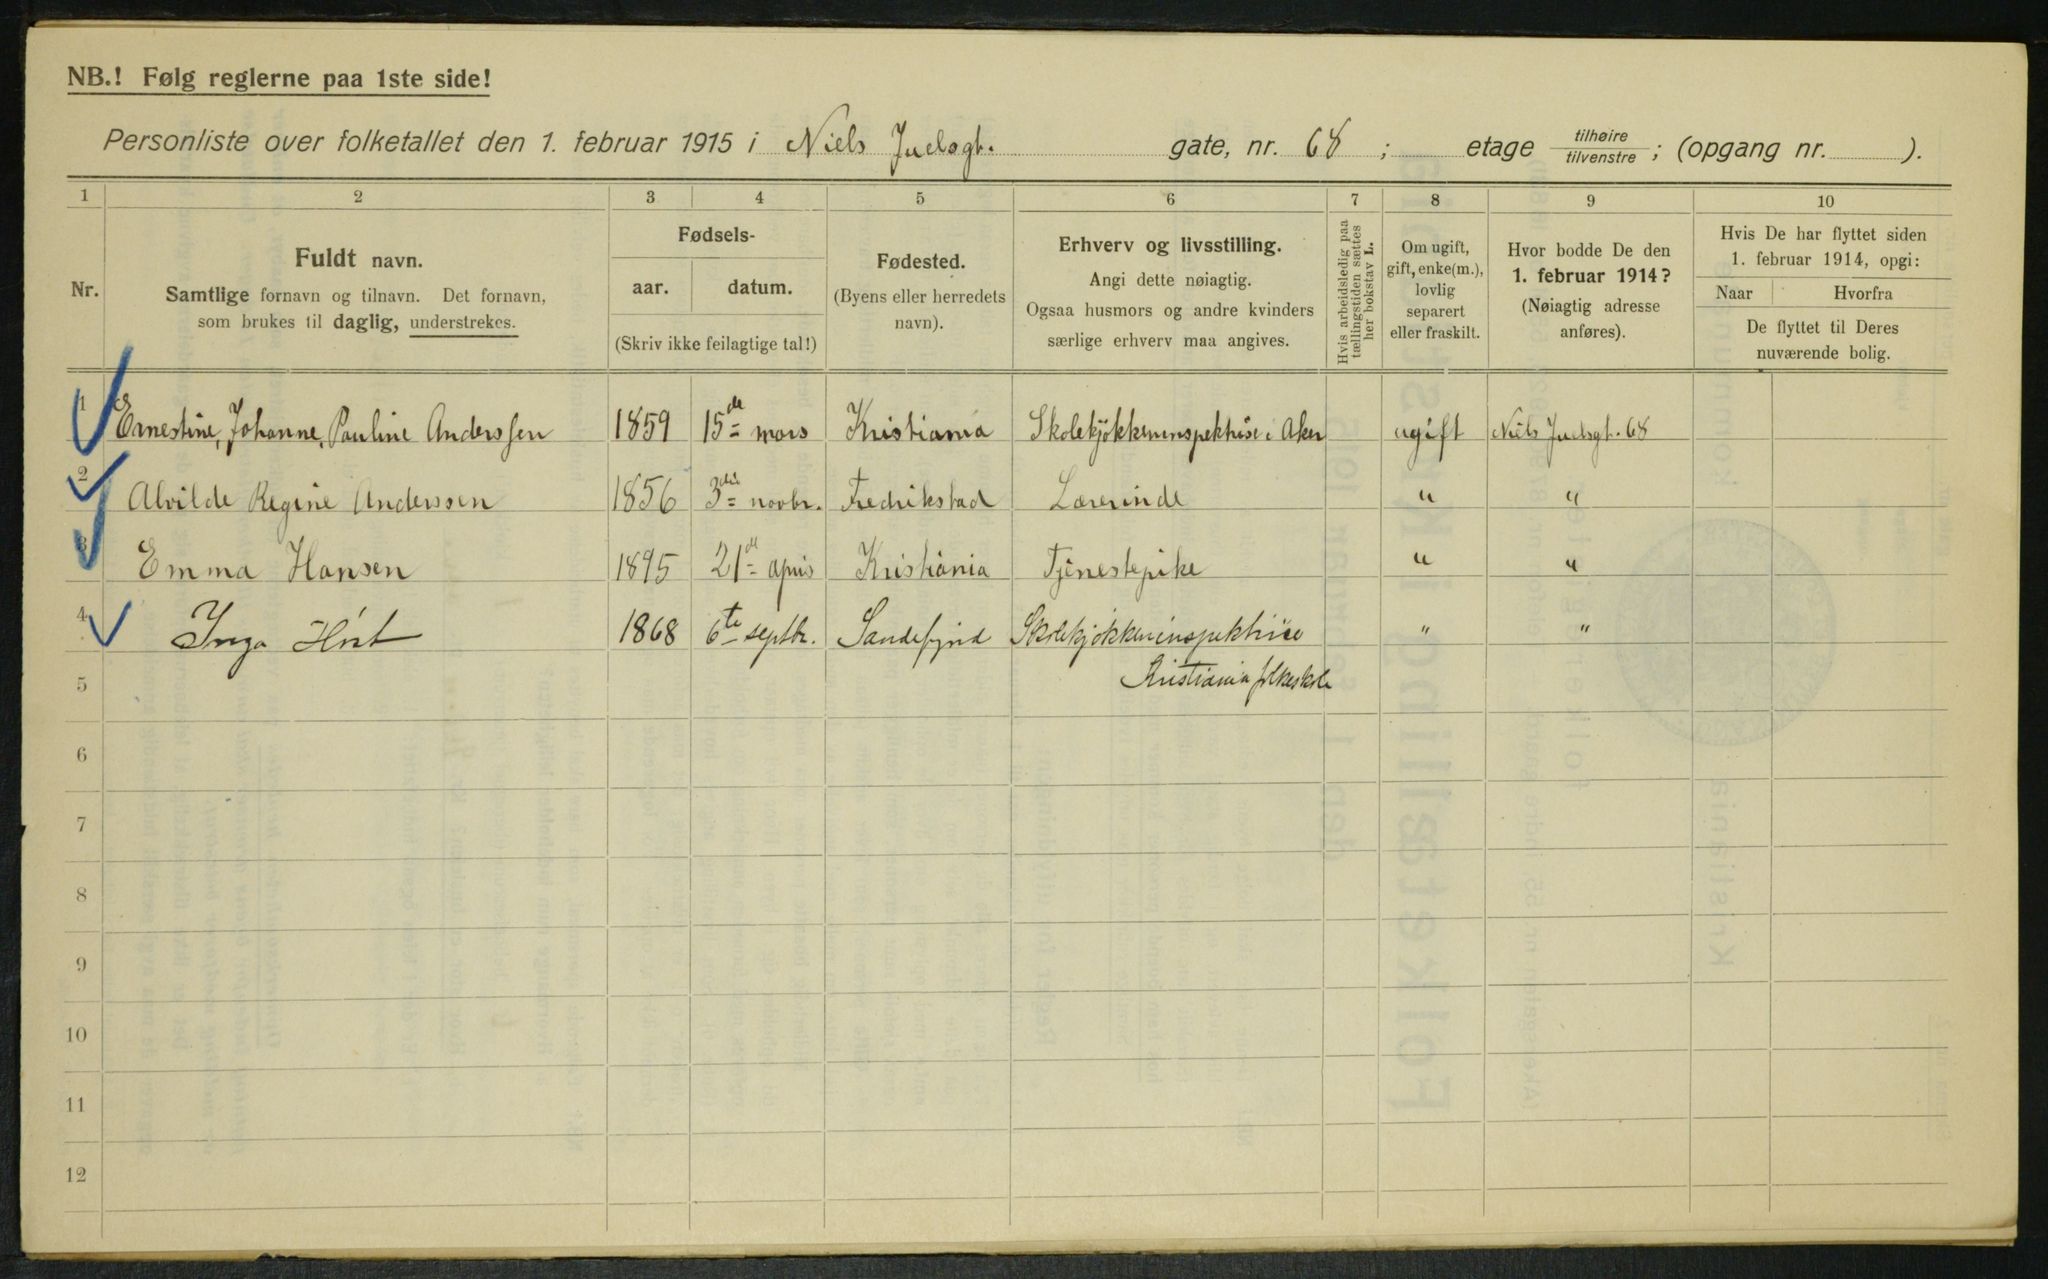 NB.! Følg reglerne paa 1ste side!
Personliste over folketallet den 1. februar 1915 i Niels Juelsgt. gate, nr. 68 ; etage tilhøire tilvenstre ; (opgang nr. ).
1 2 3 4 5 6 7 8 9 10
Nr.
Fuldt navn.
Samtlige fornavn og tilnavn. Det fornavn,
som brukes til daglig, understrekes.
Fødsels-
aar. datum.
(Skriv ikke feilagtige tal!)
Fødested.
(Byens eller herredets
navn).
Erhverv og livsstilling.
Angi dette nøiagtig.
Ogsaa husmors og andre kvinders
særlige erhverv maa angives.
Hvis arbeidsledig paa
tællingstiden sættes
her bokstav L.
Om ugift,
gift, enke(m.),
lovlig
separert
eller fraskilt.
Hvor bodde De den
1. februar 1914?
(Nøiagtig adresse
anføres).
Hvis De har flyttet siden
1. februar 1914, opgi:
Naar Hvorfra
De flyttet til Deres
nuværende bolig.
1 Ernestine, Johanne, Pauline Anderssen 1859 15de mars Kristiania Skolekjøkkeninspektrise i Aker ugift Niels Juelsgt. 68
2 Alvilde Regine Anderssen 1856 3die novbr. Fredrikstad Lærerinde " "
3 Emma Hansen 1895 21de Kristiania Tjenestepike " "
4 Inga 1868 6te septbr. Sandefjord Skolekjøkkeninspektrise " "
Kristiania folkeskole
5
6
7
8
9
10
11
12